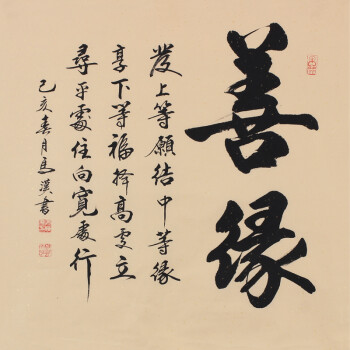 善缘
发上等愿结中等缘
享下等福择高处立
寻平处住向宽处行
己亥春月马汉书